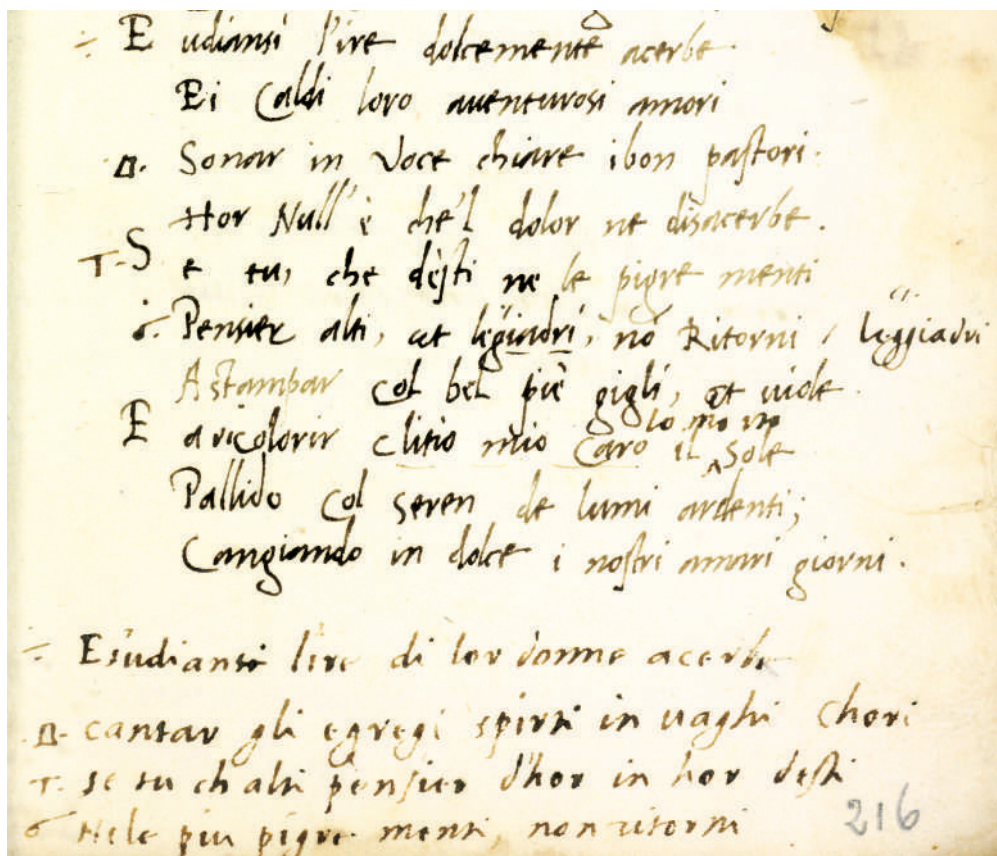 ÷ E udiansi l'ire dolcemente acerbe.
Ei Caldi loro auenturosi amori
Sonar in Voce chiare ibon pastori.
Hor Null' è che'l dolor ne disacerbe.
T. S e tu, che desti ne le pigre menti
Pensier alti, et legiadri, nõ Ritorni / leggiadri
A stampar col bel piè gigli, et uiole.
E a ricolorir Clitio mio caro il Sole
Pallido Col seren de lumi ardenti;
Cangiando in dolce i nostri amari giorni.
÷ E s'udiansi l'ire di lor donne acerbe
cantar gli egregi spirti in uaghi Chori
T. se tu ch alti pensier d'hor in hor desti
Nele piu pigre menti, non ritorni
216